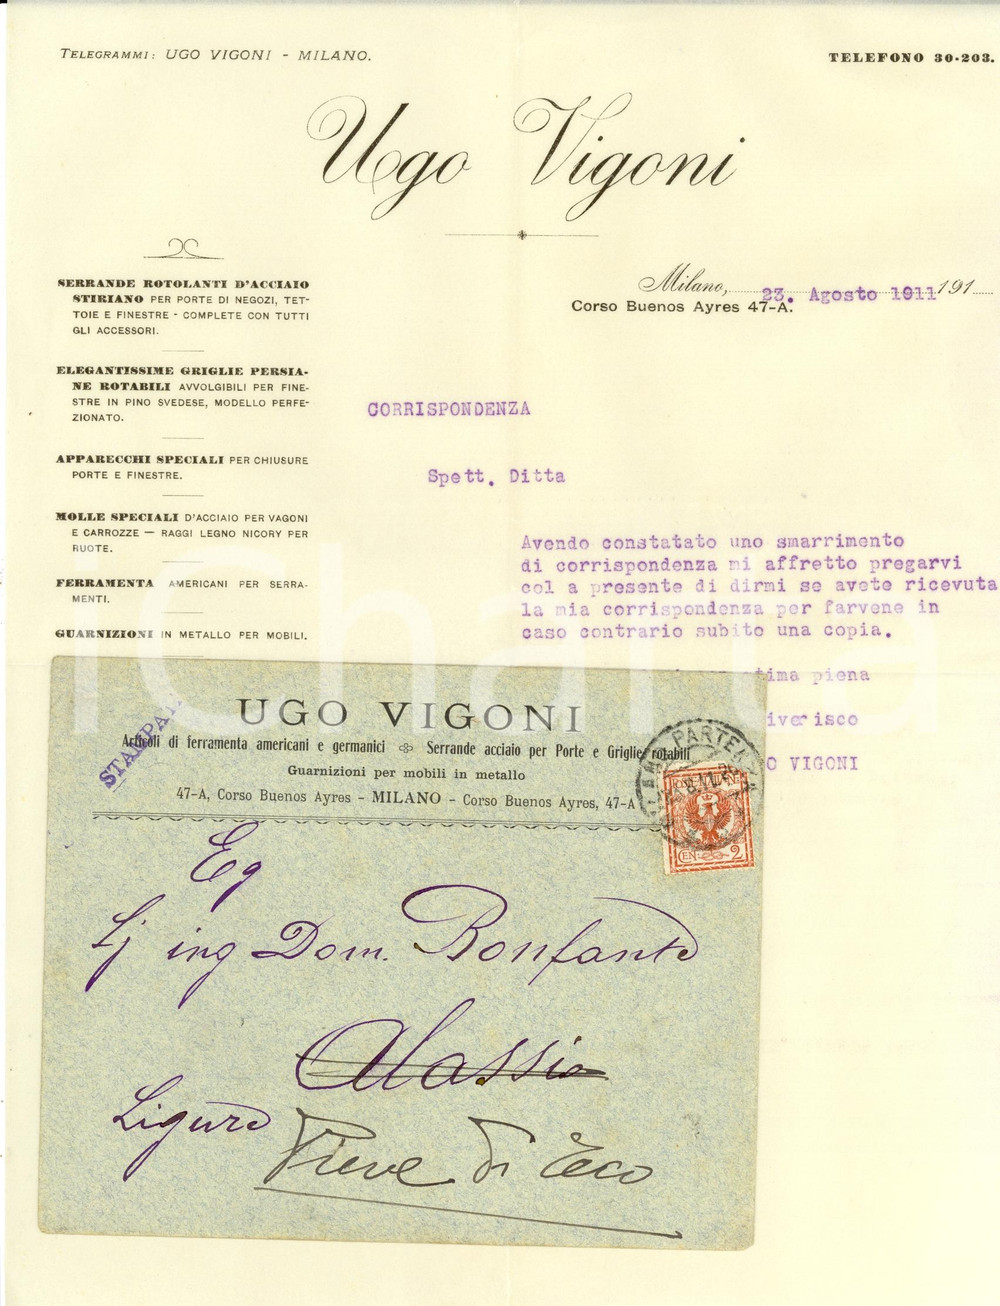 TELEGRAMMI: UGO VIGONI - MILANO.
TELEFONO 30-203.
Ugo Vigoni
SERRANDE ROTOLANTI D'ACCIAIO
STIRIANO PER PORTE DI NEGOZI, TET-
TOIE E FINESTRE - COMPLETE CON TUTTI
GLI ACCESSORI.
ELEGANTISSIME GRIGLIE PERSIA-
NE ROTABILI AVVOLGIBILI PER FINE-
STRE IN PINO SVEDESE, MODELLO PERFE-
ZIONATO.
APPARECCHI SPECIALI PER CHIUSURE
PORTE E FINESTRE.
MOLLE SPECIALI D'ACCIAIO PER VAGONI
E CARROZZE — RAGGI LEGNO NICORY PER
RUOTE.
FERRAMENTA AMERICANI PER SERRA-
MENTI.
GUARNIZIONI IN METALLO PER MOBILI.
Milano, 23. Agosto 1911 191
Corso Buenos Ayres 47-A.
CORRISPONDENZA
Spett. Ditta
Avendo constatato uno smarrimento
di corrispondenza mi affretto pregarvi
col a presente di dirmi se avete ricevuta
la mia corrispondenza per farvene in
caso contrario subito una copia.
tima piena
iverisco
O VIGONI
iCharta
STAMPA
UGO VIGONI
Articoli di ferramenta americani e germanici Serrande acciaio per Porte e Griglie rotabili
Guarnizioni per mobili in metallo
47-A, Corso Buenos Ayres - MILANO - Corso Buenos Ayres, 47-A
PARTENZA
POSTE ITALIANE
CEN 2
Eg
ing Dom. Bonfante
Alassio
Ligure
Pieve di Teco